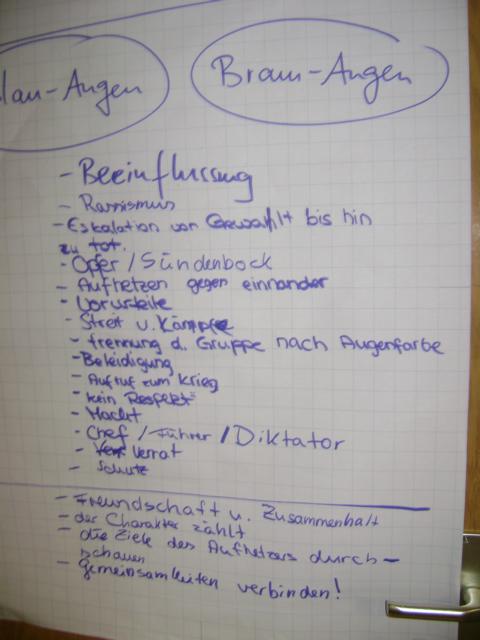 lau-Augen Braun-Augen
- Beeinflussung
- Rassismus
- Eskalation von Gewahlt bis hin
zu tot.
- Opfer / Sündenbock
- Aufhetzen gegen einnander
- Vorurteile
- Streit u. Kämpfe
- trennung d. Gruppe nach Augenfarbe
- Beleidigung
- Aufruf zum Krieg
- kein Respekt
- Macht
- Chef / Führer / Diktator
- Verrat
- Schutz
- Freundschaft u. Zusammenhalt
- der Charakter zählt
- die Ziele des Aufhetzers durch-
schauen
- gemeinsamkeiten verbinden!